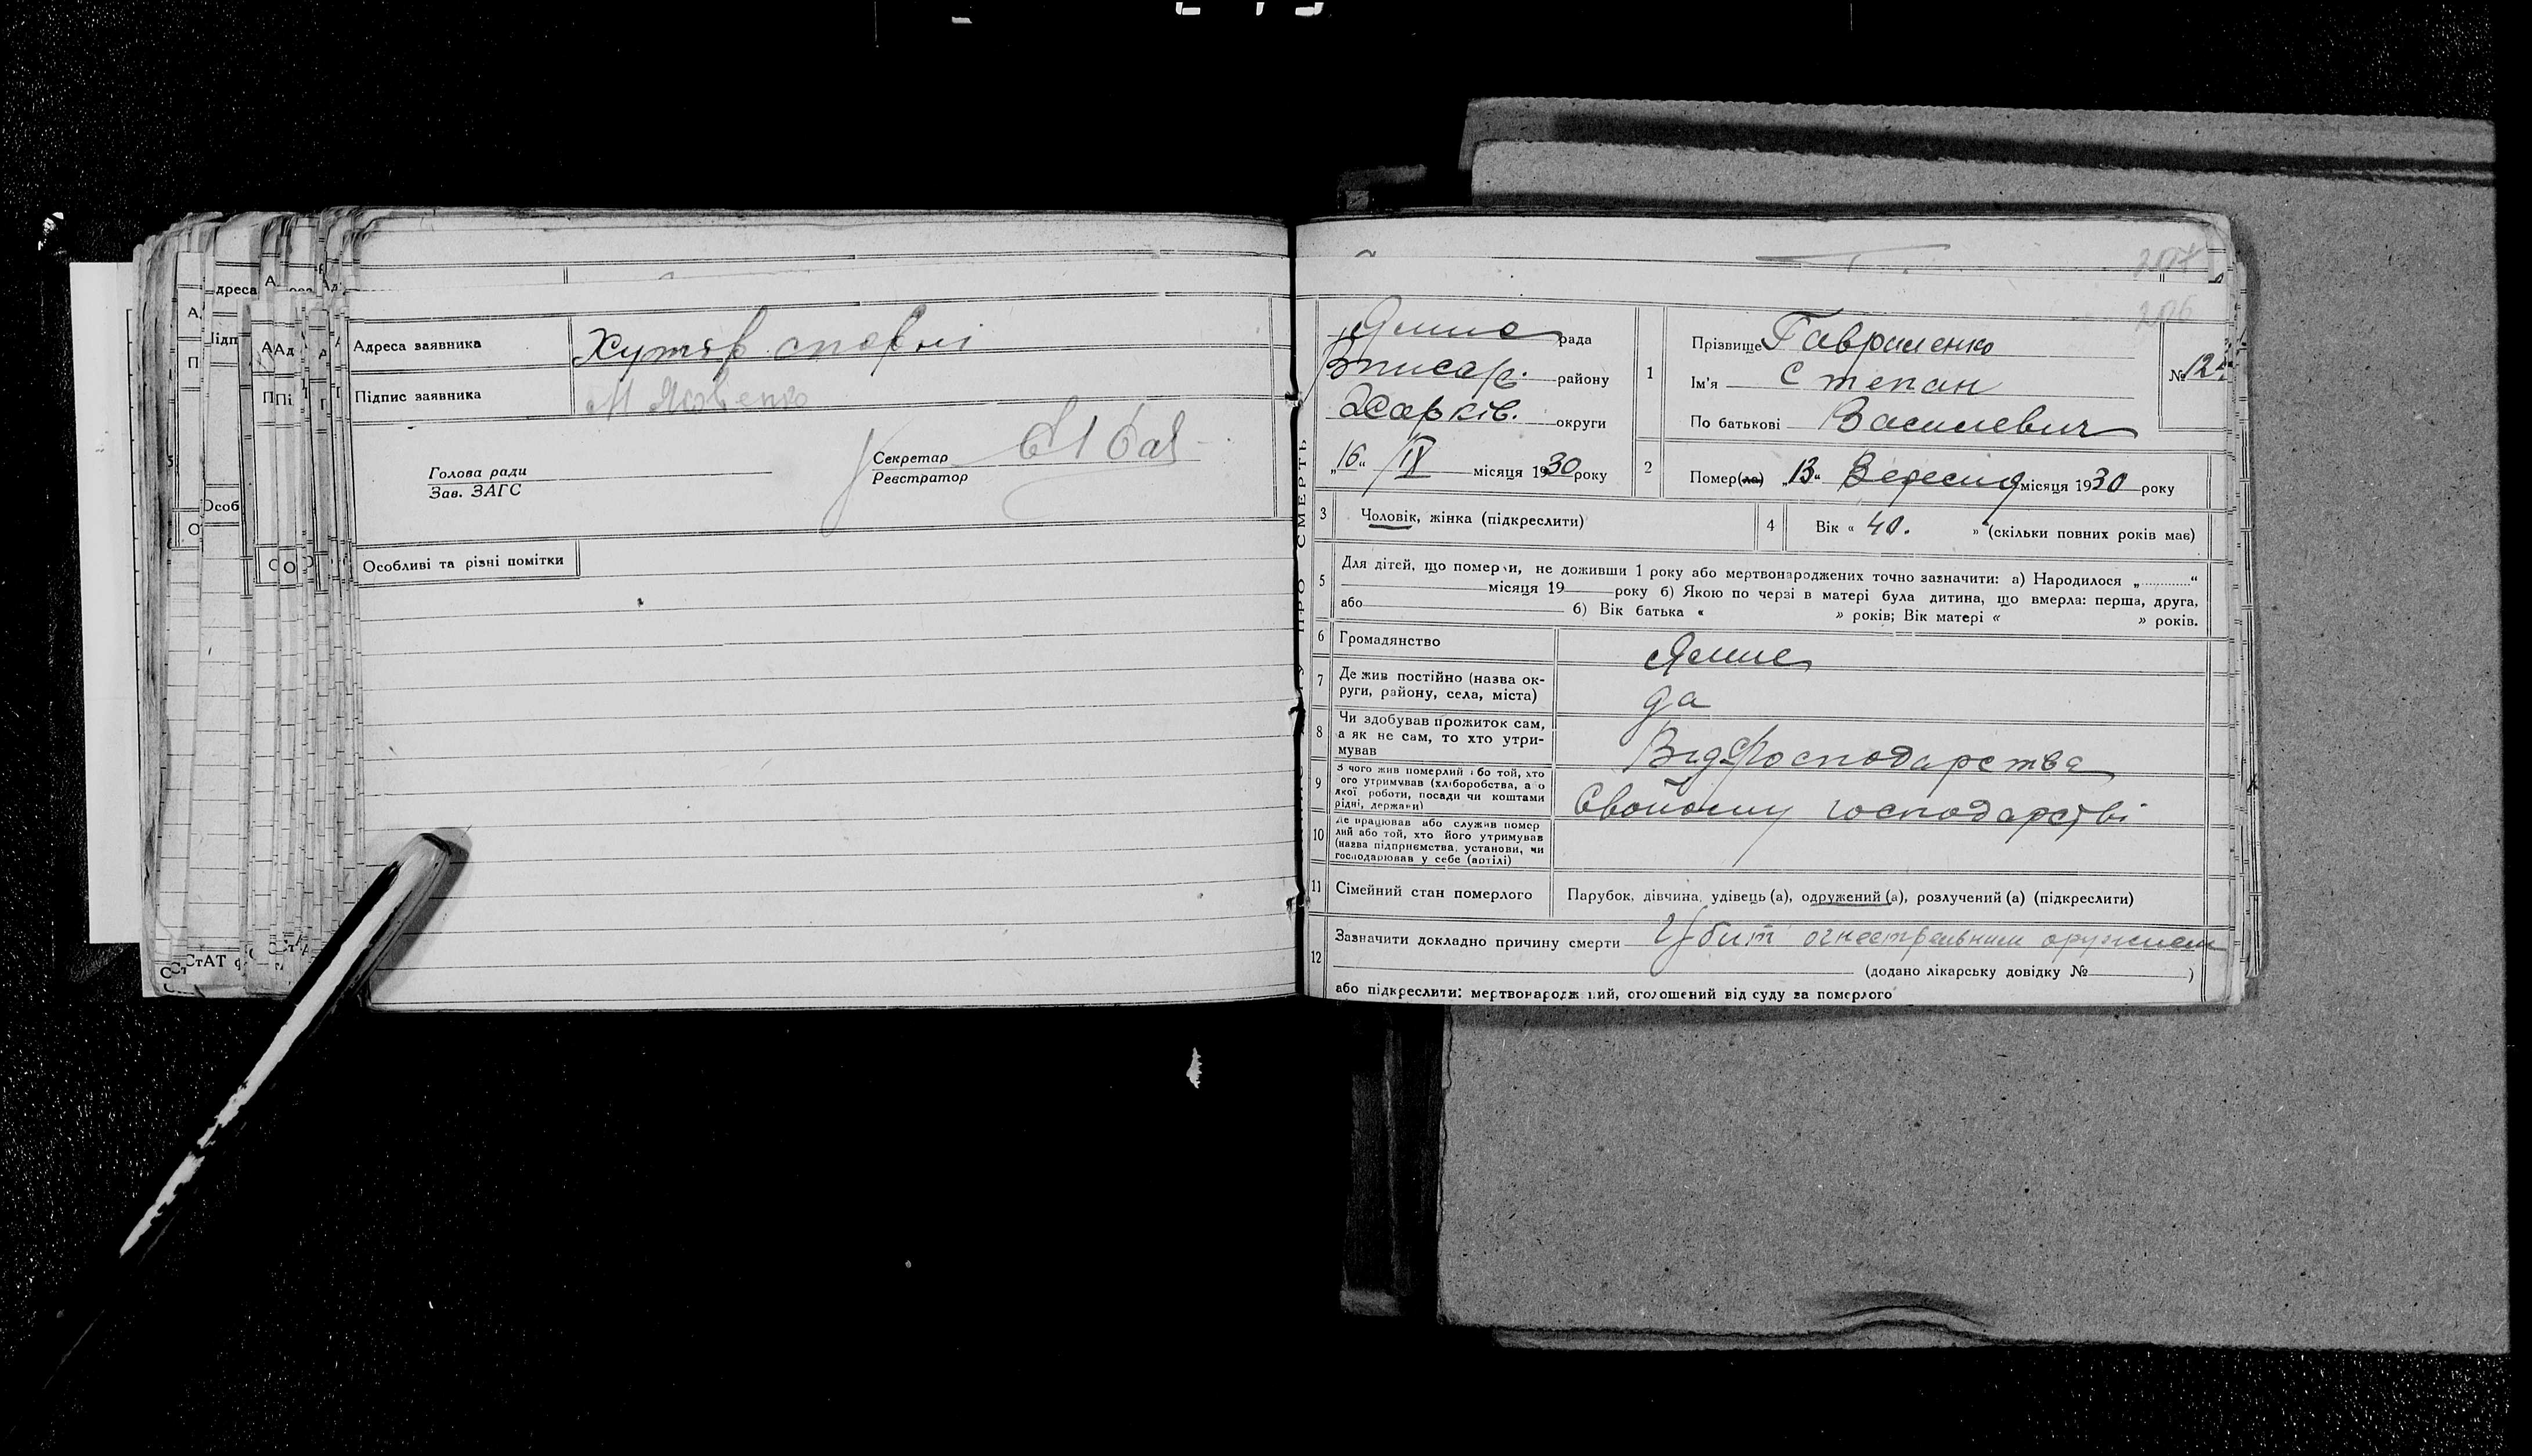 Адреса заявника
Хутяр спорні
Підпис заявника
М Яковенко
Голова ради
Зав. ЗАГС
Секретар
Реєстратор
Особливі та різні помітки
206
рада
району
Харків. округи
„16“ IX місяця 1930 року
1
Прізвище Гавриленко
Ім'я Степан
По батькові Василевич
№ 12
2
Помер(ла) „13“ Вересня місяця 1930 року
3
Чоловік, жінка (підкреслити)
4
Вік « 40. » (скільки повних років має)
5
Для дітей, що померли, не доживши 1 року або мертвонароджених точно зазначити: а) Народилося „ “
місяця 19 року б) Якою по черзі в матері була дитина, що вмерла: перша, друга,
або б) Вік батька « » років; Вік матері « » років.
6
Громадянство
7
Де жив постійно (назва ок-
руги, району, села, міста)
да
8
Чи здобував прожиток сам,
а як не сам, то хто утри-
мував
Від господарства
9
З чого жив померлий або той, хто
його утримував (хліборобства, з
якої роботи, посади чи коштами
рідні, держави)
Свойому господарстві
10
Де працював або служив помер
лий або той, хто його утримував
(назва підприємства, установи, чи
господарював у себе (артілі)
11
Сімейний стан померлого
Парубок, дівчина, удівець (а), одружений (а), розлучений (а) (підкреслити)
12
Зазначити докладно причину смерти Убит огнестрельним оружием
(додано лікарську довідку № )
або підкреслити: мертвонароджений, оголошений від суду за померлого